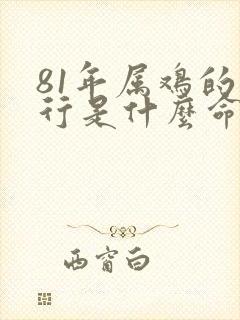 81年属鸡的
行是什麼命
西窗白